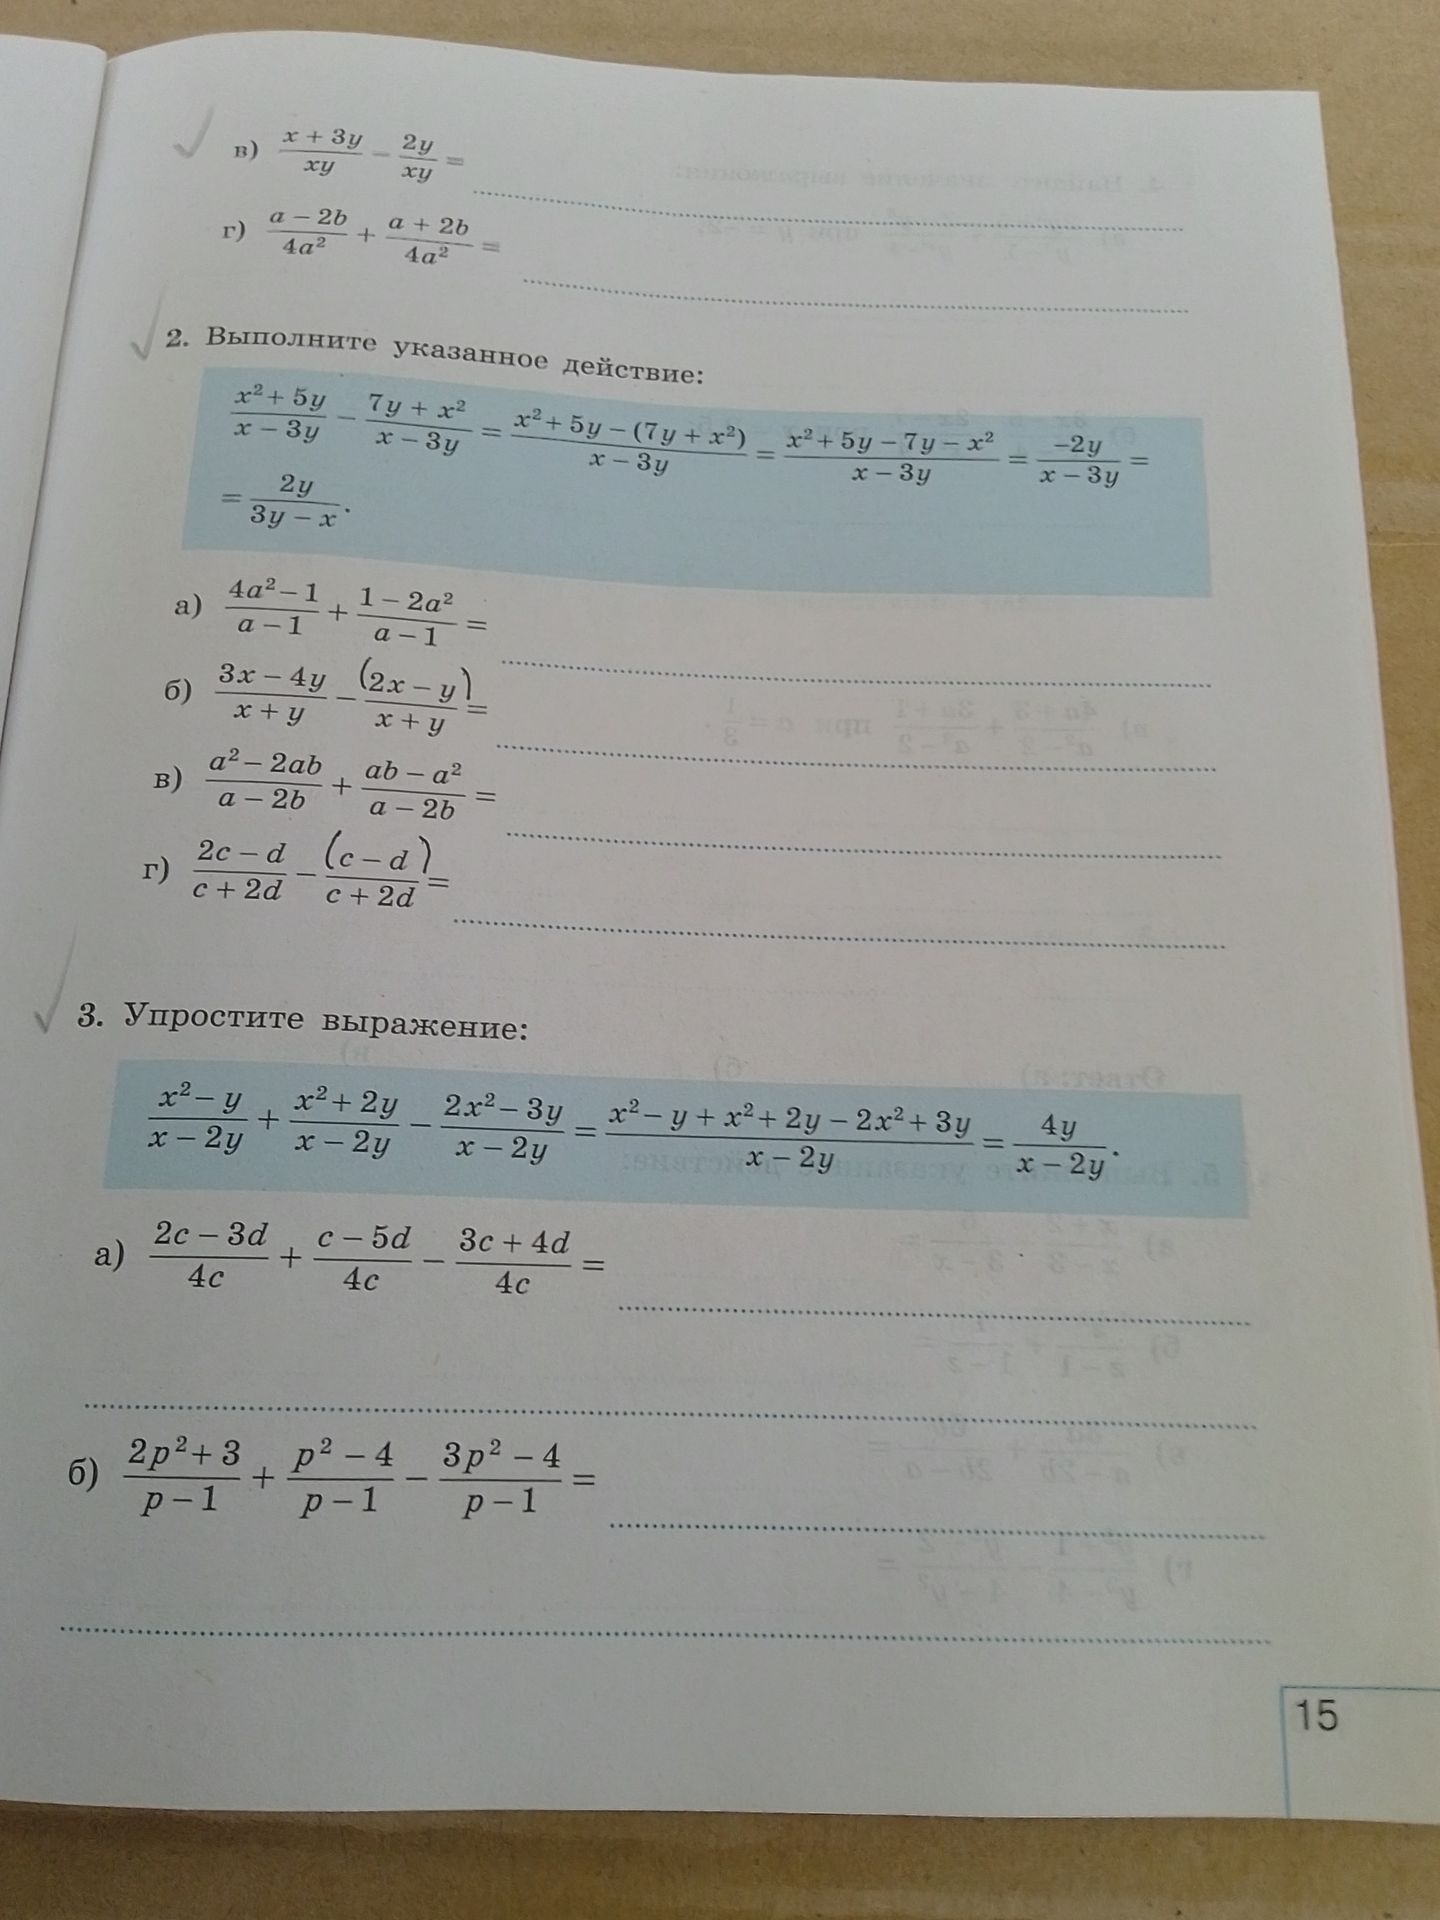 в) (x + 3y)/(xy) − (2y)/(xy) =
г) (a − 2b)/(4a²) + (a + 2b)/(4a²) =
2. Выполните указанное действие:
(x² + 5y)/(x − 3y) − (7y + x²)/(x − 3y) = (x² + 5y − (7y + x²))/(x − 3y) = (x² + 5y − 7y − x²)/(x − 3y) = (−2y)/(x − 3y) =
= (2y)/(3y − x).
а) (4a² − 1)/(a − 1) + (1 − 2a²)/(a − 1) =
б) (3x − 4y)/(x + y) − ((2x − y))/(x + y) =
в) (a² − 2ab)/(a − 2b) + (ab − a²)/(a − 2b) =
г) (2c − d)/(c + 2d) − ((c − d))/(c + 2d) =
3. Упростите выражение:
(x² − y)/(x − 2y) + (x² + 2y)/(x − 2y) − (2x² − 3y)/(x − 2y) = (x² − y + x² + 2y − 2x² + 3y)/(x − 2y) = (4y)/(x − 2y).
а) (2c − 3d)/(4c) + (c − 5d)/(4c) − (3c + 4d)/(4c) =
б) (2p² + 3)/(p − 1) + (p² − 4)/(p − 1) − (3p² − 4)/(p − 1) =
15